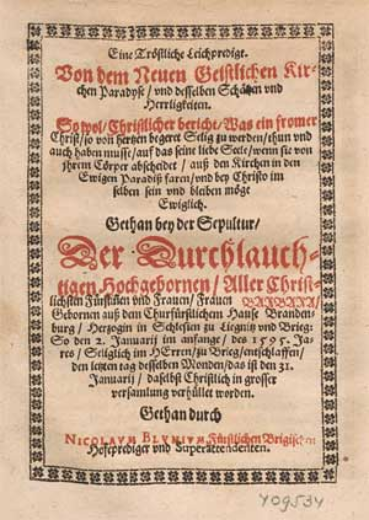 Eine Tröstliche Leichpredigt.
Von dem Neuen Geistlichen Kir-
chen Paradyse / und desselben Schätzen und
Herrligkeiten.
So wol / Christlicher bericht / Was ein fromer
Christ / so von hertzen begeret Selig zu werden / thun und
auch haben musse / auf das seine liebe Seele / wenn sie von
ihrem Cörper abscheidet / auß den Kirchen in den
Ewigen Paradiß faren / und bey Christo im
selben sein und bleiben möge
Ewiglich.
Gethan bey der Sepultur /
Der Durchlauch-
tigen Hochgebornen / Aller Christ-
lichsten Fürstinen und Frauen / Frauen BARBARA /
Gebornen auß dem Churfürstlichem Hause Branden-
burg / Herzogin in Schlesien zu Liegnitz und Brieg:
So den 2. Januarij im anfange / des 1595. Ja-
res / Seliglich im HErren / zu Brieg / entschlaffen /
den letzten tag desselben Monden / das ist den 31.
Januarij / daselbst Christlich in grosser
versamlung verhüllet worden.
Gethan durch
NICOLAVM BLVNIVM Fürstlichen Brigischen
Hofeprediger und Superattendenten.
Yog534